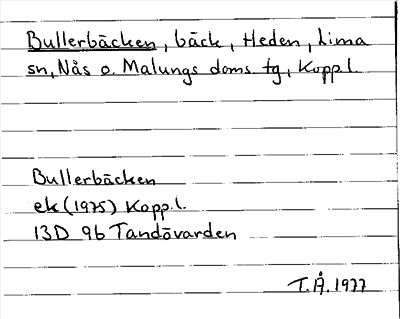 Bullerbäcken, bäck, Heden, Lima
sn, Nås o. Malungs doms. tg, Kopp.l.
Bullerbäcken
ek (1975) Kopp.l.
13D 9b Tandövarden
T.Å. 1977